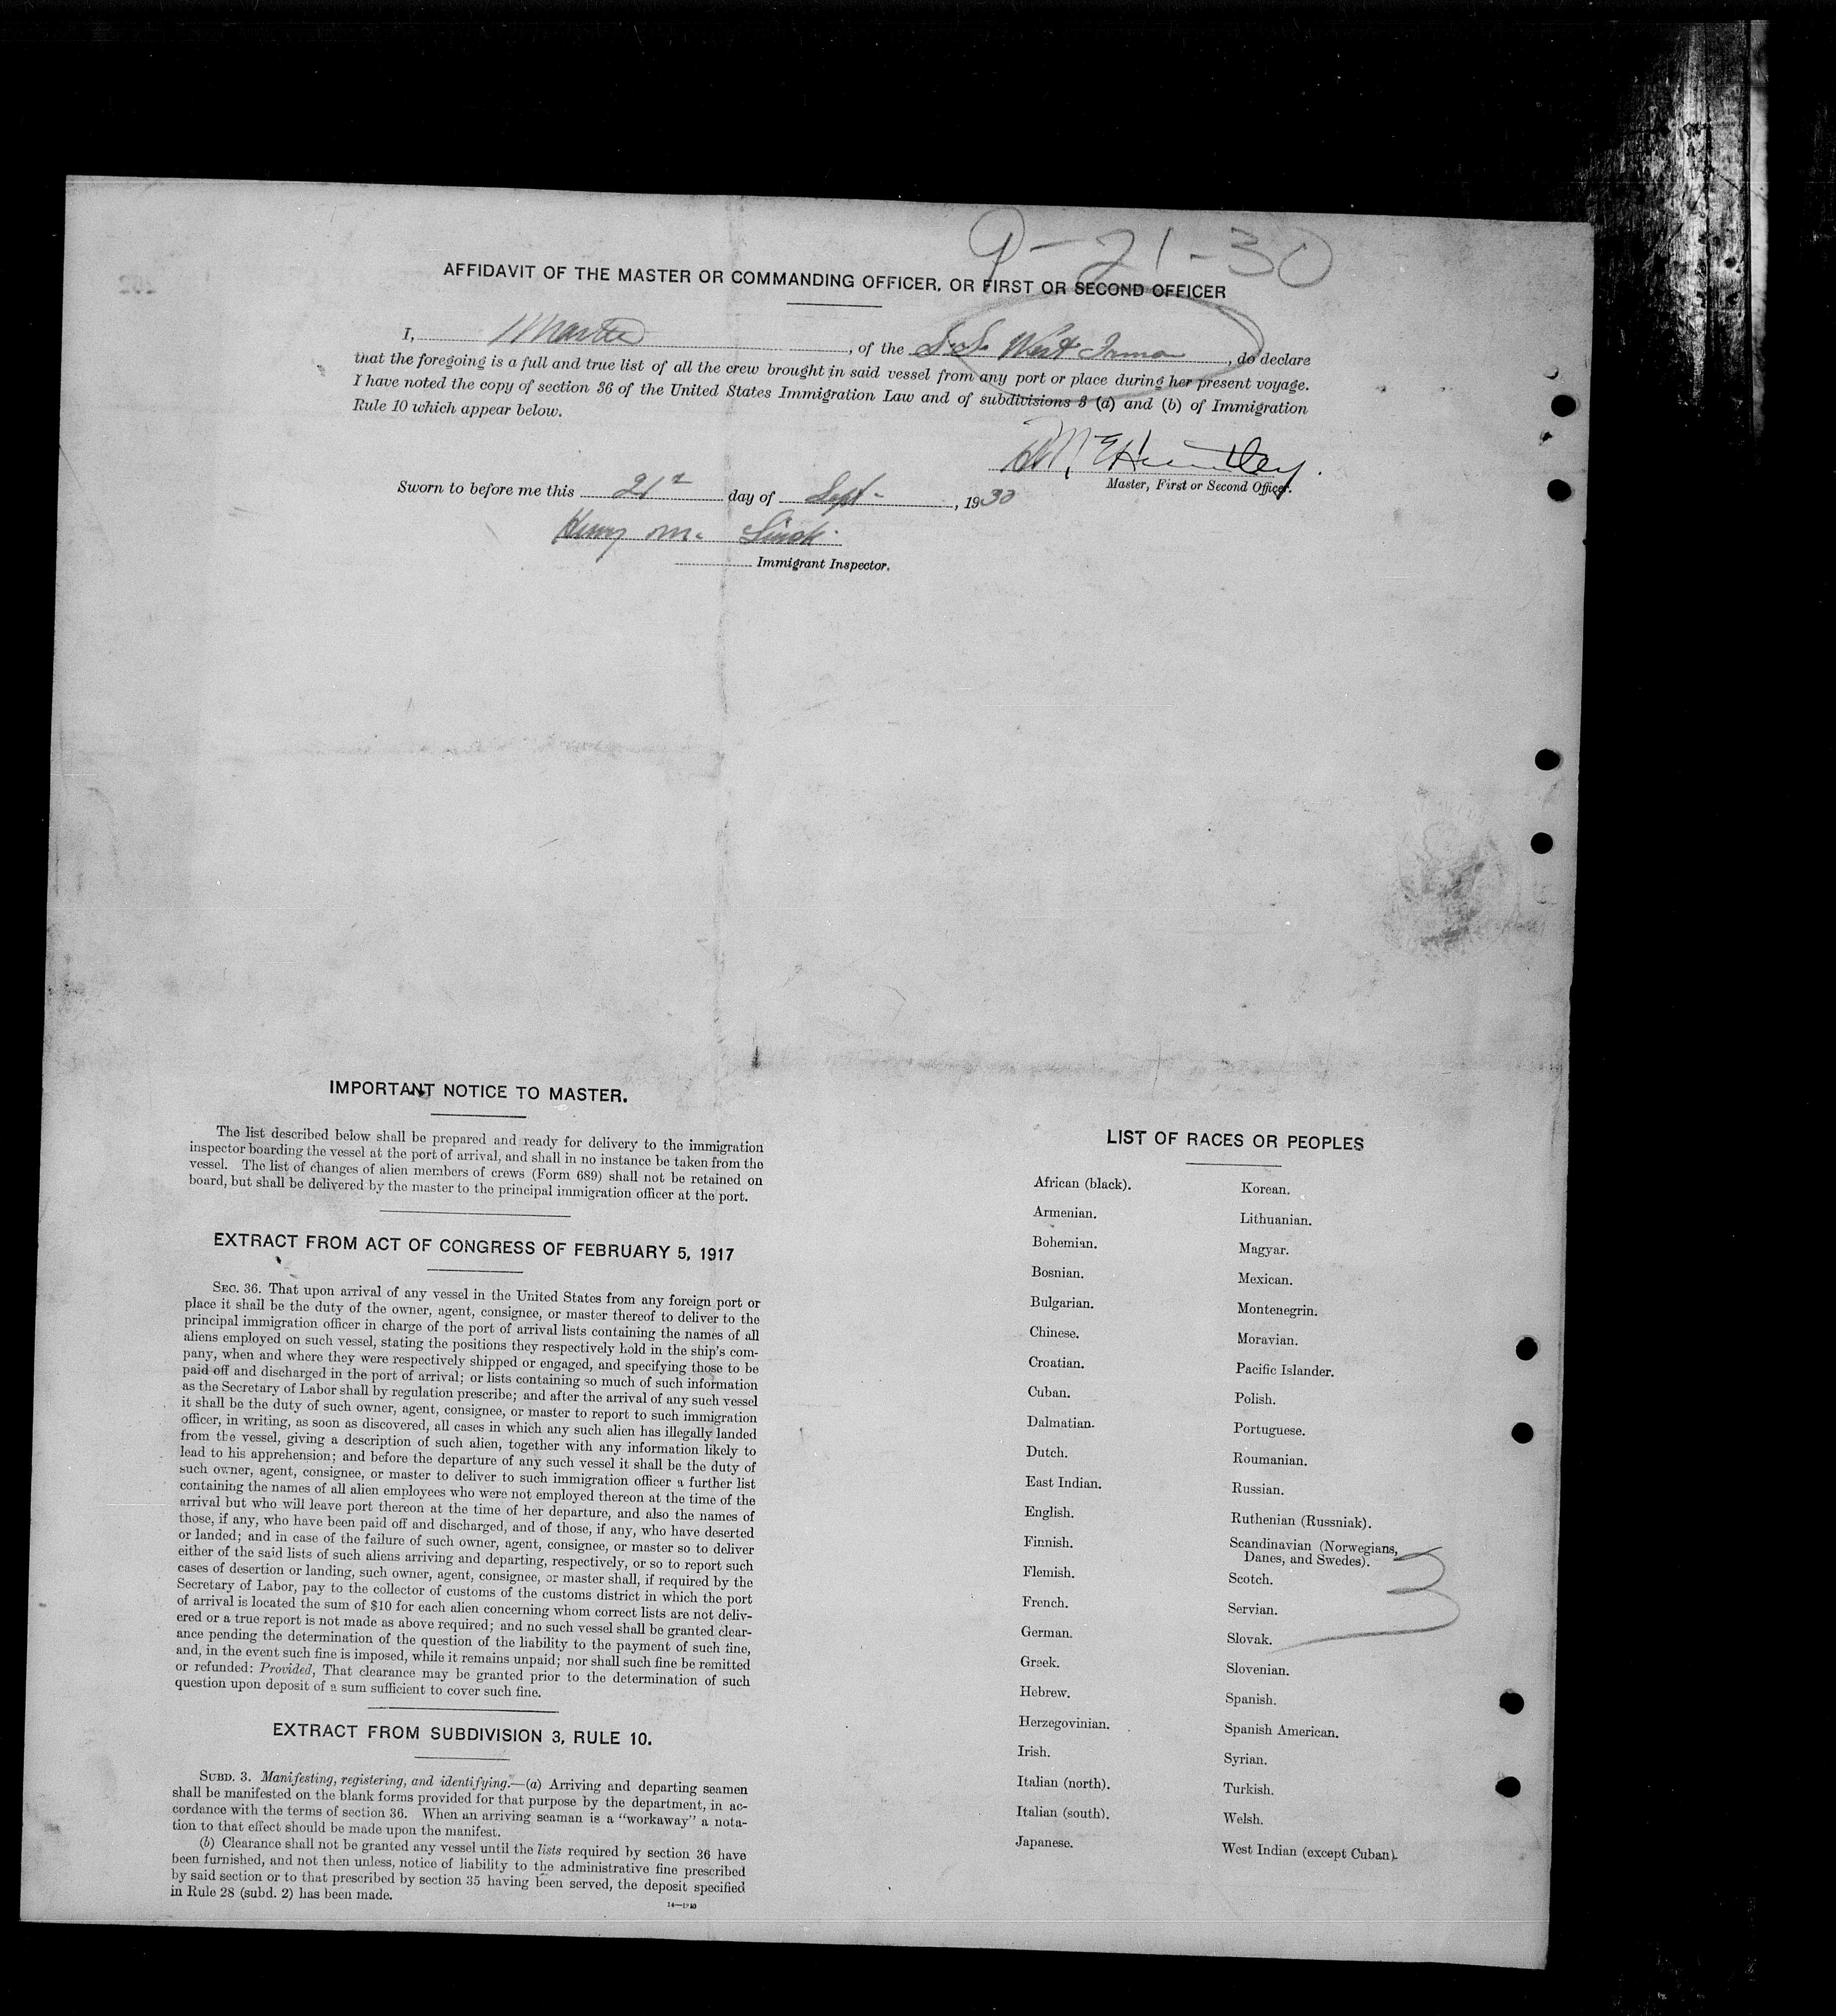 9-21-30
AFFIDAVIT OF THE MASTER OR COMMANDING OFFICER, OR FIRST OR SECOND OFFICER
I, Master, of the S.S. West Inman, do declare
that the foregoing is a full and true list of all the crew brought in said vessel from any port or place during her present voyage.
I have noted the copy of section 36 of the United States Immigration Law and of subdivisions 3 (a) and (b) of Immigration
Rule 10 which appear below.
Master, First or Second Officer.
Sworn to before me this 21st day of Sept-, 1930
Henry M.
Immigrant Inspector.
IMPORTANT NOTICE TO MASTER.
The list described below shall be prepared and ready for delivery to the immigration
inspector boarding the vessel at the port of arrival, and shall in no instance be taken from the
vessel. The list of changes of alien members of crews (Form 689) shall not be retained on
board, but shall be delivered by the master to the principal immigration officer at the port.
EXTRACT FROM ACT OF CONGRESS OF FEBRUARY 5, 1917
SEC. 36. That upon arrival of any vessel in the United States from any foreign port or
place it shall be the duty of the owner, agent, consignee, or master thereof to deliver to the
principal immigration officer in charge of the port of arrival lists containing the names of all
aliens employed on such vessel, stating the positions they respectively hold in the ship's com-
pany, when and where they were respectively shipped or engaged, and specifying those to be
paid off and discharged in the port of arrival; or lists containing so much of such information
as the Secretary of Labor shall by regulation prescribe; and after the arrival of any such vessel
it shall be the duty of such owner, agent, consignee, or master to report to such immigration
officer, in writing, as soon as discovered, all cases in which any such alien has illegally landed
from the vessel, giving a description of such alien, together with any information likely to
lead to his apprehension; and before the departure of any such vessel it shall be the duty of
such owner, agent, consignee, or master to deliver to such immigration officer a further list
containing the names of all alien employees who were not employed thereon at the time of the
arrival but who will leave port thereon at the time of her departure, and also the names of
those, if any, who have been paid off and discharged, and of those, if any, who have deserted
or landed; and in case of the failure of such owner, agent, consignee, or master so to deliver
either of the said lists of such aliens arriving and departing, respectively, or so to report such
cases of desertion or landing, such owner, agent, consignee, or master shall, if required by the
Secretary of Labor, pay to the collector of customs of the customs district in which the port
of arrival is located the sum of $10 for each alien concerning whom correct lists are not deliv-
ered or a true report is not made as above required; and no such vessel shall be granted clear-
ance pending the determination of the question of the liability to the payment of such fine,
and, in the event such fine is imposed, while it remains unpaid; nor shall such fine be remitted
or refunded: Provided, That clearance may be granted prior to the determination of such
question upon deposit of a sum sufficient to cover such fine.
EXTRACT FROM SUBDIVISION 3, RULE 10.
SUBD. 3. Manifesting, registering, and identifying.—(a) Arriving and departing seamen
shall be manifested on the blank forms provided for that purpose by the department, in ac-
cordance with the terms of section 36. When an arriving seaman is a "workaway" a nota-
tion to that effect should be made upon the manifest.
(b) Clearance shall not be granted any vessel until the lists required by section 36 have
been furnished, and not then unless, notice of liability to the administrative fine prescribed
by said section or to that prescribed by section 35 having been served, the deposit specified
in Rule 28 (subd. 2) has been made.
LIST OF RACES OR PEOPLES
African (black).
Armenian.
Bohemian.
Bosnian.
Bulgarian.
Chinese.
Croatian.
Cuban.
Dalmatian.
Dutch.
East Indian.
English.
Finnish.
Flemish.
French.
German.
Greek.
Hebrew.
Herzegovinian.
Irish.
Italian (north).
Italian (south).
Japanese.
Korean.
Lithuanian.
Magyar.
Mexican.
Montenegrin.
Moravian.
Pacific Islander.
Polish.
Portuguese.
Roumanian.
Russian.
Ruthenian (Russniak).
Scandinavian (Norwegians,
Danes, and Swedes).
Scotch.
Servian.
Slovak.
Slovenian.
Spanish.
Spanish American.
Syrian.
Turkish.
Welsh.
West Indian (except Cuban).
3